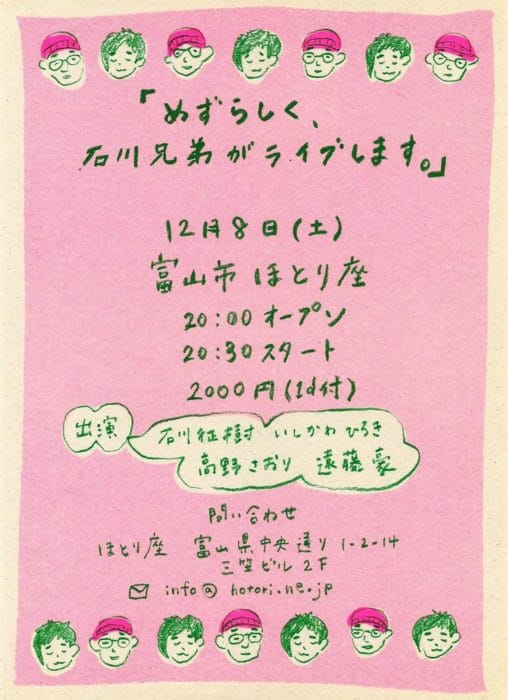 「めずらしく、
石川兄弟がライブします。」
12月8日(土)
富山市 ほとり座
20:00 オープン
20:30 スタート
2000円(1d付)
出演
石川征樹 いしかわひろき
高野さおり 遠藤豪
問い合わせ
ほとり座 富山県中央通り 1-2-14
三笠ビル 2F
info@hotori.ne.jp